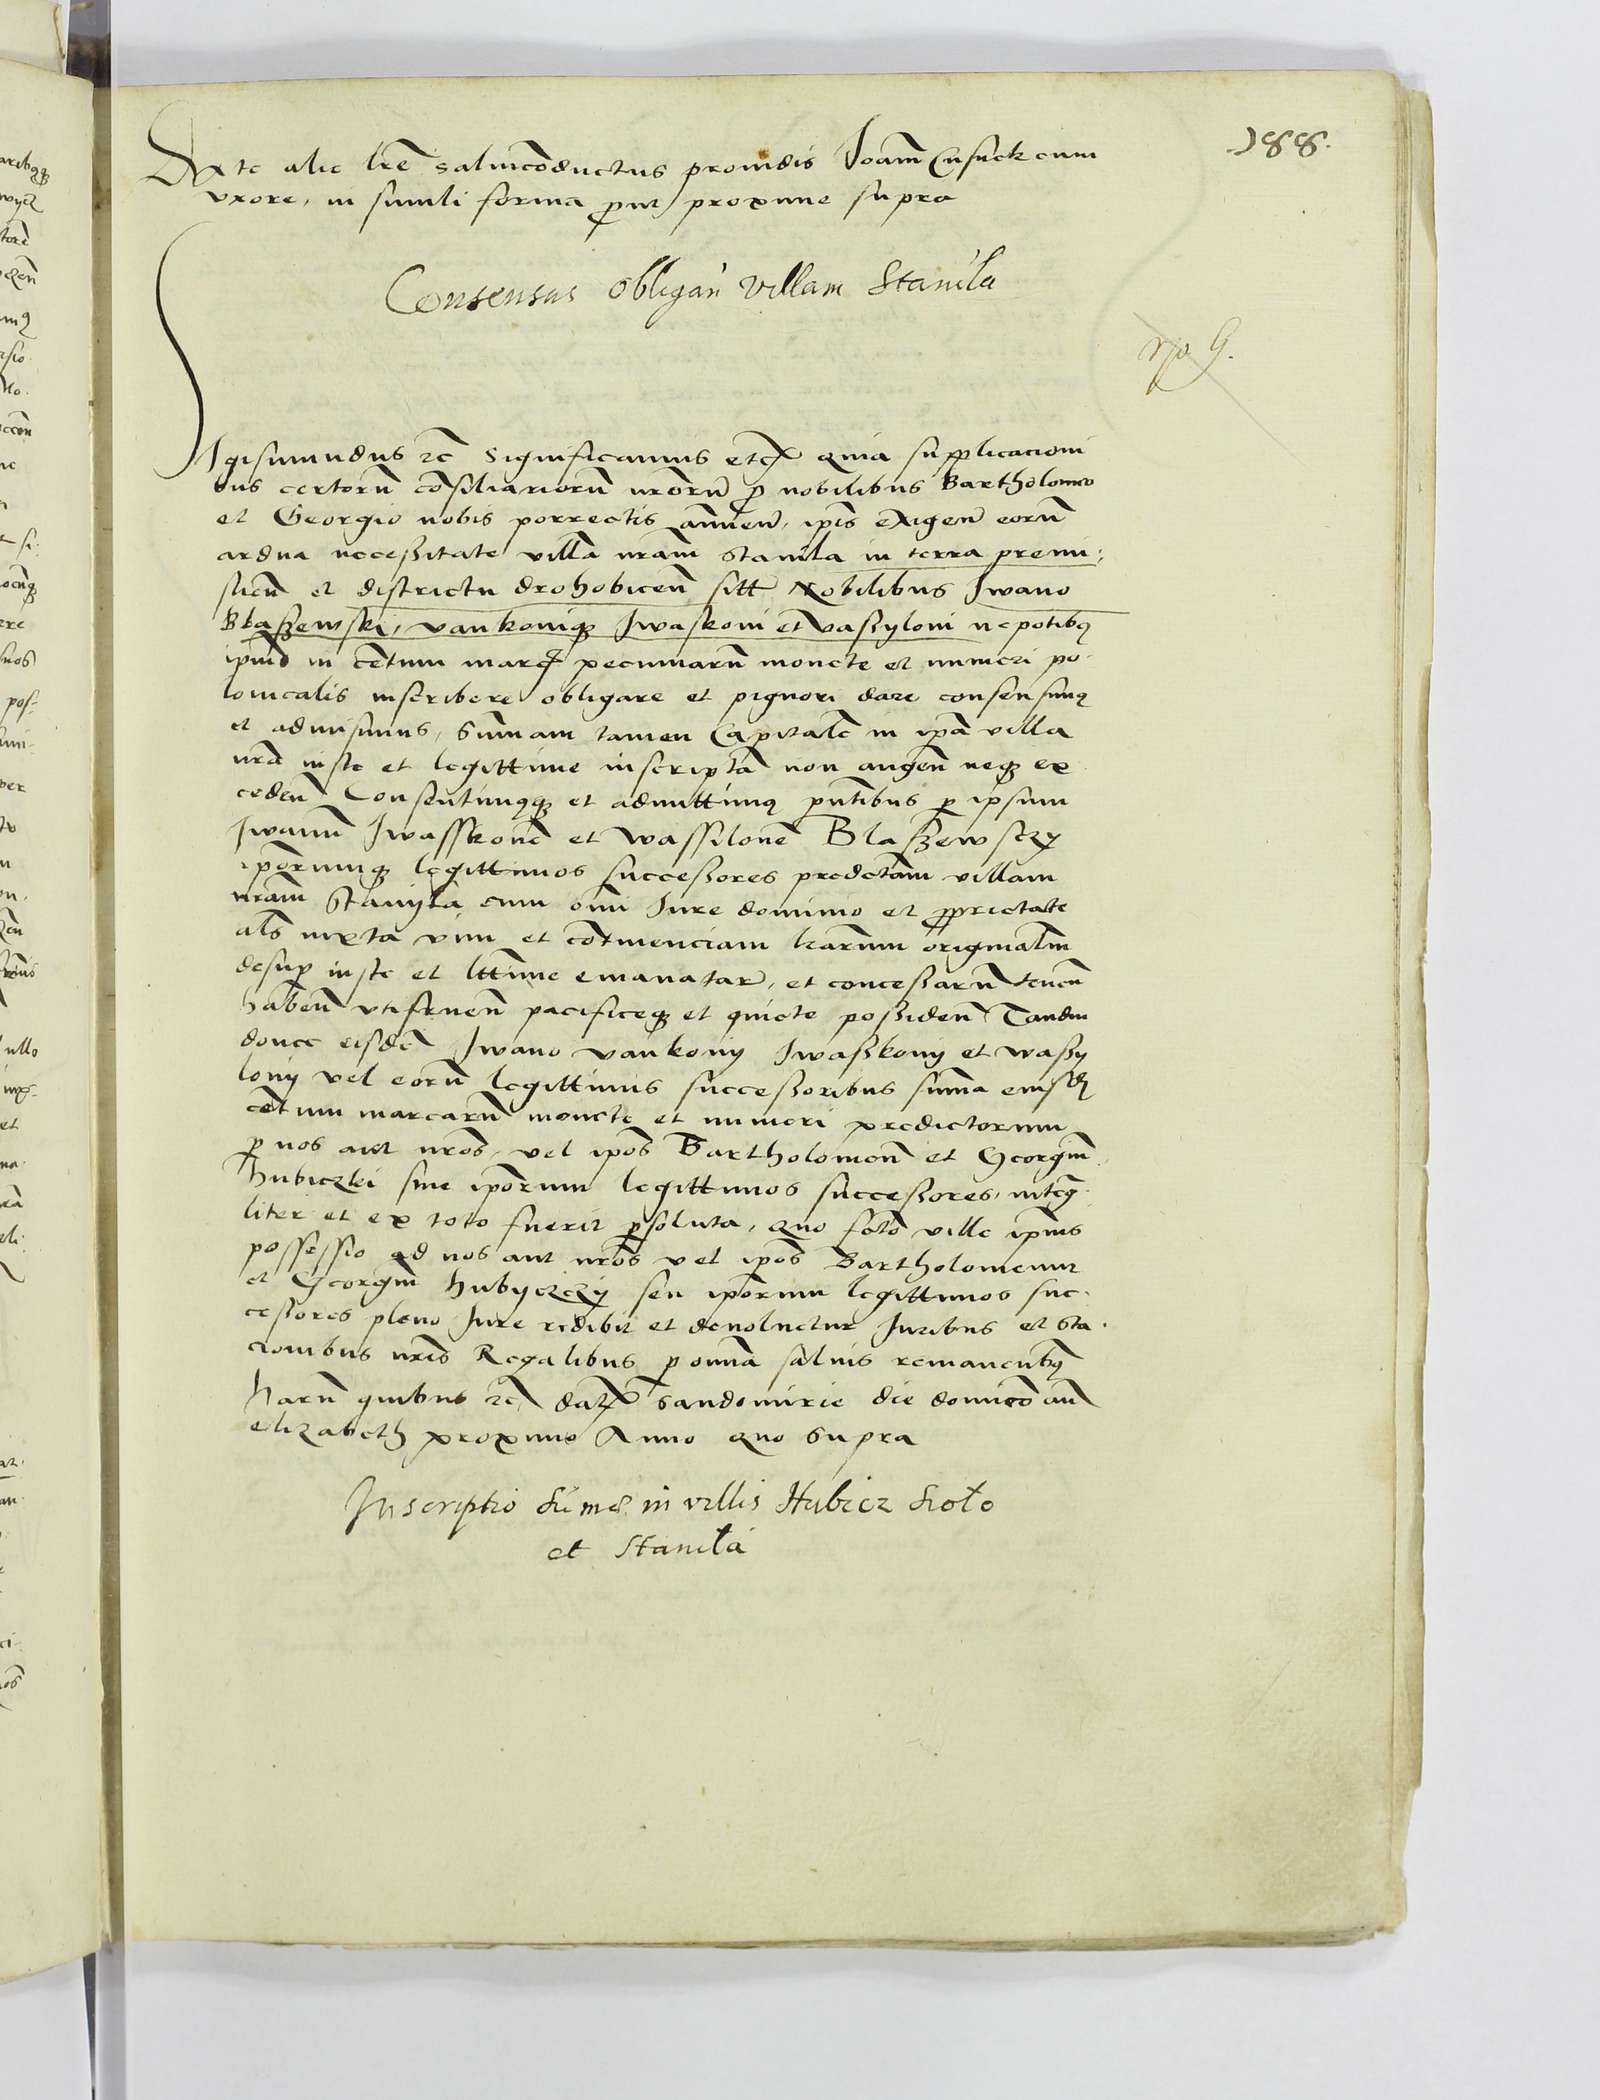 188.
Date alie lre̅ salvico̅ductus providis Joan̅i Cusick cum
vxore, in simili forma p̅ut proxime supra
Consensus obligan̅ villam Stanila
No 9.
Sigismundus &c̅ Significamus etc̅ quia supplicacioni
bus certoru̅ co̅siliarioru̅ n̅roru̅ p̅ nobilibus Bartholomeo
et Georgio nobis porrectis an̅uen̅, ip̅is exigen̅ eoru̅
ardua necessitate villa̅ n̅ram̅ Stanila in terra premi:
slien̅ et districtu drohobicen̅ sitt̅ Nobilibus Iwano
Blaszewski, vankoniq̨ Iwaskoni et vassyloni nepotibq̨
ip̅iu̅s in ce̅tum marc̅ pecuniaru̅ monete et numeri po
lonicalis inscribere obligare et pignori dare consensimq̨
et admisimus, sum̅am tamen Capitale̅ in ip̅a villa
n̅ra̅ iuste et legittime inscripta̅ non augen̅ neq̨ ex
ceden̅ Consentimq̨q̨ et admittimq̨ p̅ntibus p̅ ipsum
Iwanu̅ Iwasskone̅ et Wassilone̅ Blaszewsczy
ip̅orumq̨ legittimos successores predicta̅m villam
n̅ram̅ Stanyla cum om̅i Iure dominio et proprietate
al̅s iuxta vim et co̅tinenciam l̅rarum original̅m
desup̅ iuste et l̅ttime emanatar̅, et concessaru̅ tenen̅
haben̅ vtifruen̅ pacificeq̨ et quiete possiden̅ Tamdiu
donec eisde̅ Iwano vankony Iwasskony et wassy
lony vel eoru̅ legittimis successoribus sum̅a eiusd̅
ce̅tum marcaru̅ monete et numeri predictorum
p̅ nos aut n̅ros, vel ip̅os Bartholomeu̅ et Georgiu̅
Hubiczki sive ip̅orum legittimos successores, integ̅
liter et ex toto fuerit p̅soluta, quo fc̅to ville ip̅ius
possessio ad nos aut n̅ros vel ip̅os Bartholomeum
et Georgiu̅ Hubyczczy seu ip̅orum legittimos suc
cessores pleno Iure redibit et devoluetur Iuribus et sta
cionibus n̅ris Regalibus p̅ om̅ia salvis remanentibq̨
Haru̅ quibus &c̅ dat̅ Sandomirie die dominico an̅
elizabeth proximo Anno quo supra
Inscriptio sum̅ae in villis Hubicz Sioło
et Staniła